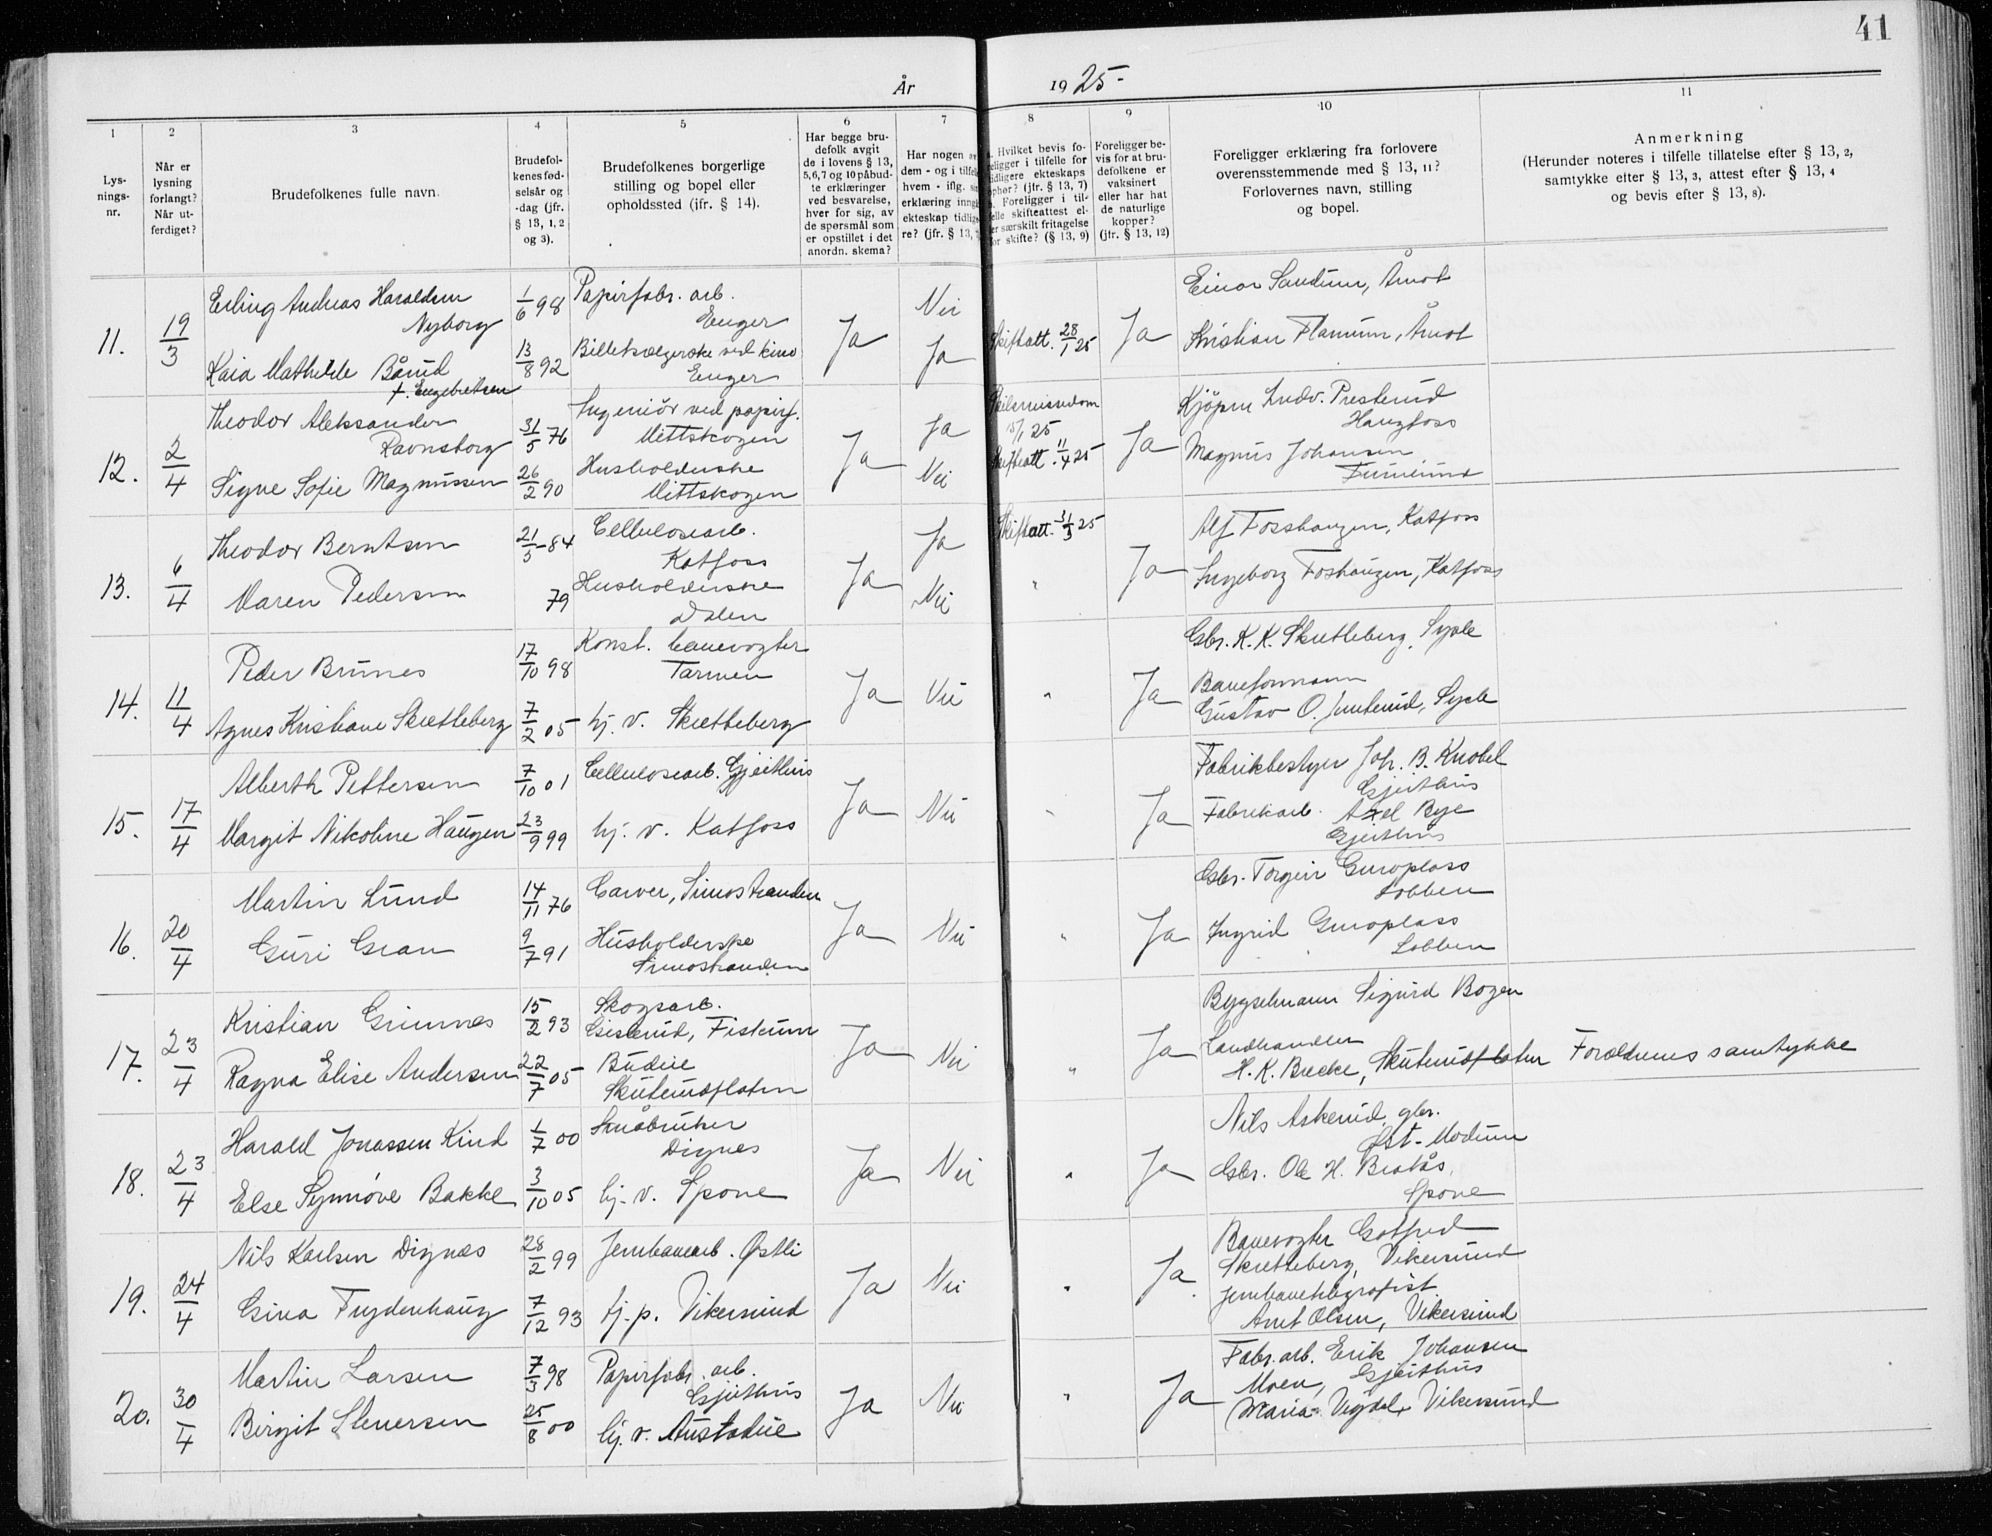 41
År 1925-
1 2 3 4 5 6 7 8 9 10 11
Lys-
nings-
nr.
Når er
lysning
forlangt?
Når ut-
ferdiget?
Brudefolkenes fulle navn.
Brudefol-
kenes fød-
selsår og
-dag (jfr.
§ 13, 1, 2
og 3).
Brudefolkenes borgerlige
stilling og bopel eller
opholdssted (ifr. § 14).
Har begge bru-
defolk avgit
de i lovens § 13,
5,6,7 og 10 påbud-
te erklæringer
ved besvarelse,
hver for sig, av
de spørsmål som
er opstillet i det
anordn. skema?
Har nogen av
dem - og i tilfe
hvem - iflg. sin
erklæring inng
ekteskap tidlig
re? (jfr. § 13, 7
Hvilket bevis fo-
religger i tilfelle for
tidligere ekteskaps
ophør? (jfr. § 13, 7)
Foreligger i til-
felle skifteattest el-
er særskilt fritagelse
for skifte? (§ 13, 9)
Foreligger be-
vis for at bru-
defolkene er
vaksinert
eller har hat
de naturlige
kopper?
(jfr. § 13, 12)
Foreligger erklæring fra forlovere
overensstemmende med § 13, 11?
Forlovernes navn, stilling
og bopel.
Anmerkning
(Herunder noteres i tilfelle tillatelse efter § 13, 2,
samtykke efter § 13, 3, attest efter § 13, 4
og bevis efter § 13, 8).
11. 19/3 Erling Andreas Haraldsen 1/6 98 Papirfabr. arb. Nei Einar Sandum, Åmot
Nyborg Enger Ja Skiftatt. 28/1 25 Ja Kristian Flannum, Åmot
Kaia Mathilde Bårud 13/8 92 Billetsælgerske ved kino Ja
f. Engebretsen Enger
12. 2/4 Theodor Aleksander 31/5 76 Ingeniör ved papirf. Ja Skilsmissedom Kjöpm Ludv. Presterud
Ravnsborg Mittskogen Ja 15/1 25 Ja Haugfoss
Signe Sofie Magnussen 26/2 90 Husholderske Nei Skiftatt. 11/4 25 Magnus Johansen
Mittskogen Furulund
13. 6/4 Theodor Berntsen 21/5-84 Cellulosearb. Ja Skiftatt. 31/3 25 Alf Fosshaugen, Katfoss
Katfoss Ja Ja
Maren Pedersen 79 Husholderske Nei " Ingeborg Foshaugen, Katfoss
Dalen
14. 11/4 Peder Brunes 17/10 98 Konst. banevogter Gbr. K. K. Skretteberg, Sysle
Tarmen Ja Nei " Ja Baneformann
Agnes Kristiane Skretteberg 7/2 05- hj. v. Skretteberg Gustav O. , Sysle
15. 17/4 Alberth Pettersen 7/10 01 Cellulosearb. Gjeithus Ja Nei " Ja Fabrikbestyrer Joh. B. Knobel
Gjeithus
Margit Nikoline Haugen 23/9 99 hj. v. Katfoss Fabrikarb. Axel Bye
Gjeithus
16. 20/4 Martin Lund 14/11 76 Carver, Simostranden Ja Nei " Ja Gbr. Torgeir Guroplass
Lobben
Guri Gran 9/7 91 Husholderske Ingrid Guroplass
Simostranden Lobben
17. 23/4 Kristian Grimnes 15/2 93 Skogsarb. Bygselmann Sigurd Bogen
Gislerud, Fiskum Ja Nei " Ja Landhandler
Ragna Elise Andersen 22/7 05- Budeie H. K. Brecke, Skuterudflaten Forældrenes samtykke
Skuterudflaten
18. 23/4 Harald Jonassen Kind 1/7 00 Småbruker Nils Askerud, gbr.
Dignes Ja Nei " Ja Øst-Modum
Else Synnöve Bakke 3/10 05 hj. v. Spone Gbr. Ole H. Bratås,
Spone
19. 24/4 Nils Karlsen Dignæs 28/2 99 Jernbanearb. Østli Ja Nei " Ja Banevogter Gotfred
Skretteberg, Vikersund
Gina Frydenhaug 7/12 93 tj.p. Vikersund Jernbanetelegrafist
Arnt Olsen, Vikersund
20. 30/4 Martin Larsen 7/3 98 Papirfabr. arb. Fabr. arb. Erik Johansen
Gjeithus Ja Nei " Ja Moen, Gjeithus
Birgit Stenersen 25/8 00 hj. v. Austadeie Maria , Vikersund